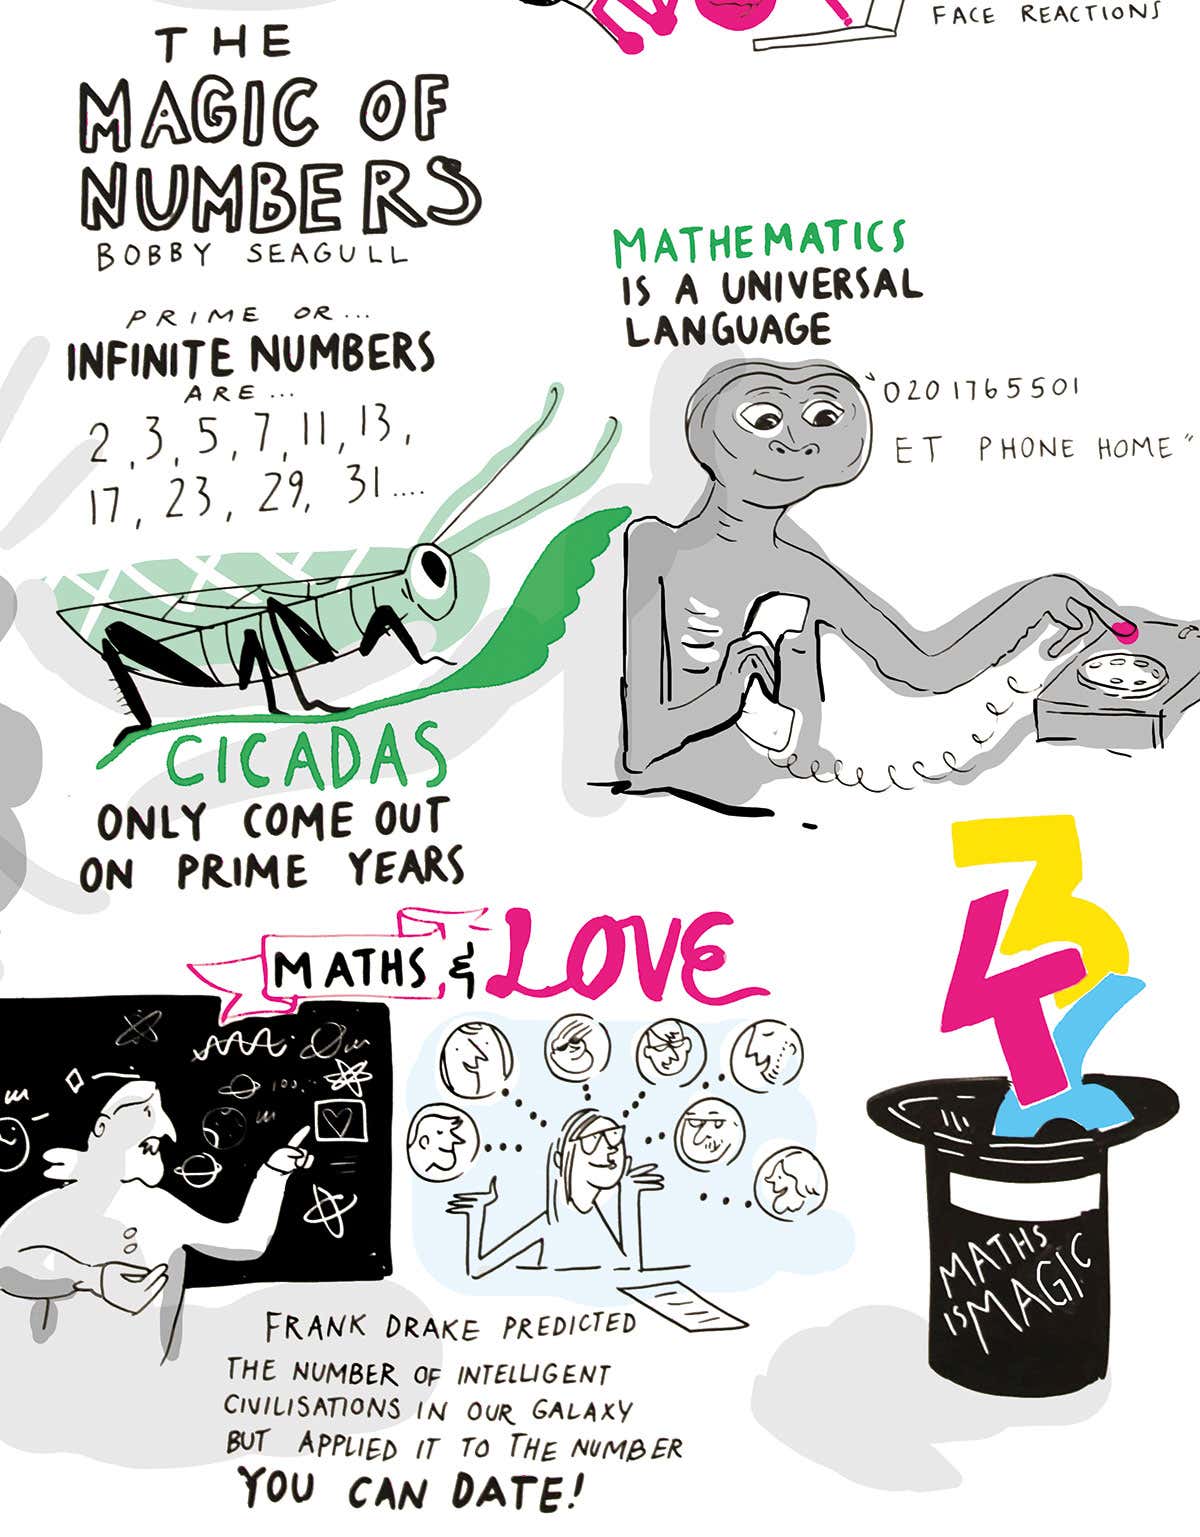 FACE REACTIONS
THE
MAGIC OF
NUMBERS
BOBBY SEAGULL
PRIME OR...
INFINITE NUMBERS
ARE...
2, 3, 5, 7, 11, 13,
17, 23, 29, 31....
CICADAS
ONLY COME OUT
ON PRIME YEARS
MATHEMATICS
IS A UNIVERSAL
LANGUAGE
"020 1765501
ET PHONE HOME"
MATHS & LOVE
100...
FRANK DRAKE PREDICTED
THE NUMBER OF INTELLIGENT
CIVILISATIONS IN OUR GALAXY
BUT APPLIED IT TO THE NUMBER
YOU CAN DATE!
3
4
MATHS
IS MAGIC